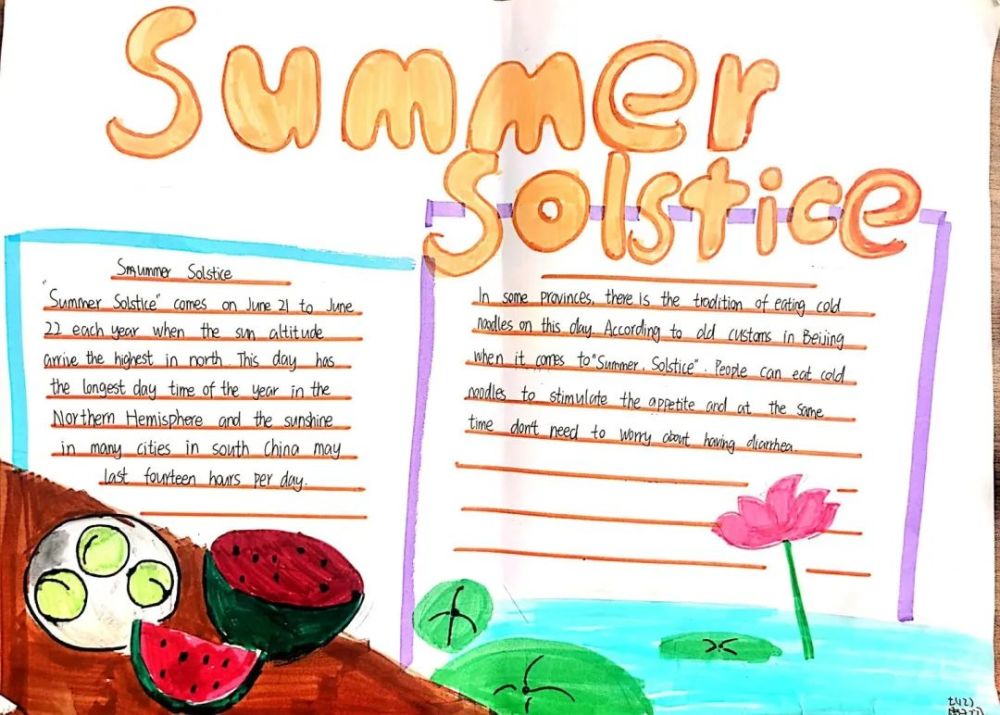 Summer
Solstice
Summer Solstice
"Summer Solstice" comes on June 21 to June
22 each year when the sun altitude
arrive the highest in north. This day has
the longest day time of the year in the
Northern Hemisphere and the sunshine
in many cities in south China may
last fourteen hours per day.
In some provinces, there is the tradition of eating cold
noodles on this day. According to old customs in Beijing
when it comes to "Summer, Solstice". People can eat cold
noodles to stimulate the appetite and at the same
time don't need to worry about having diarrhea.